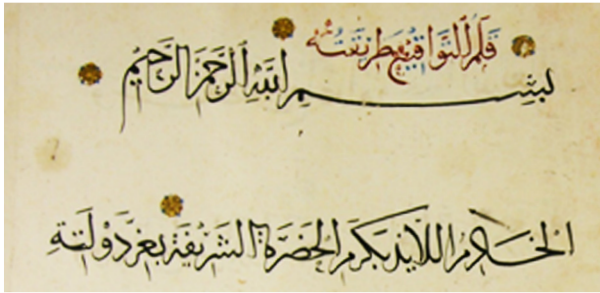 قلم التواقيع طريقته
بسم الله الرحمن الرحيم
الخادم اللائذ بكرم الحضرة الشريفة بعز دولته